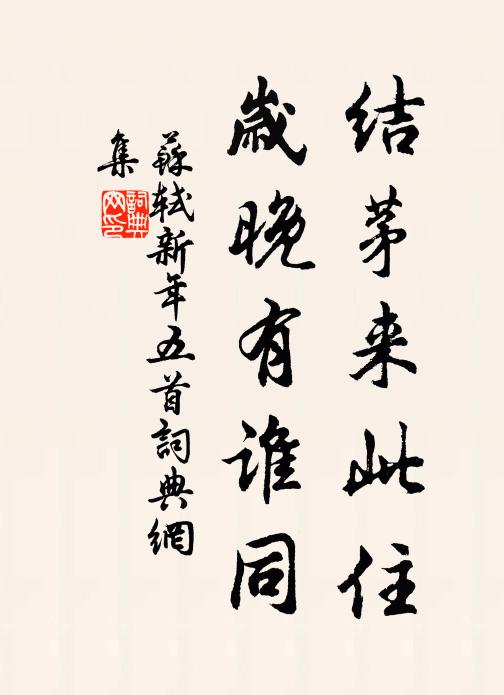 结茅来此住
歲晚有谁同
蘇轼新年五首詞典網
集
詞典
网印